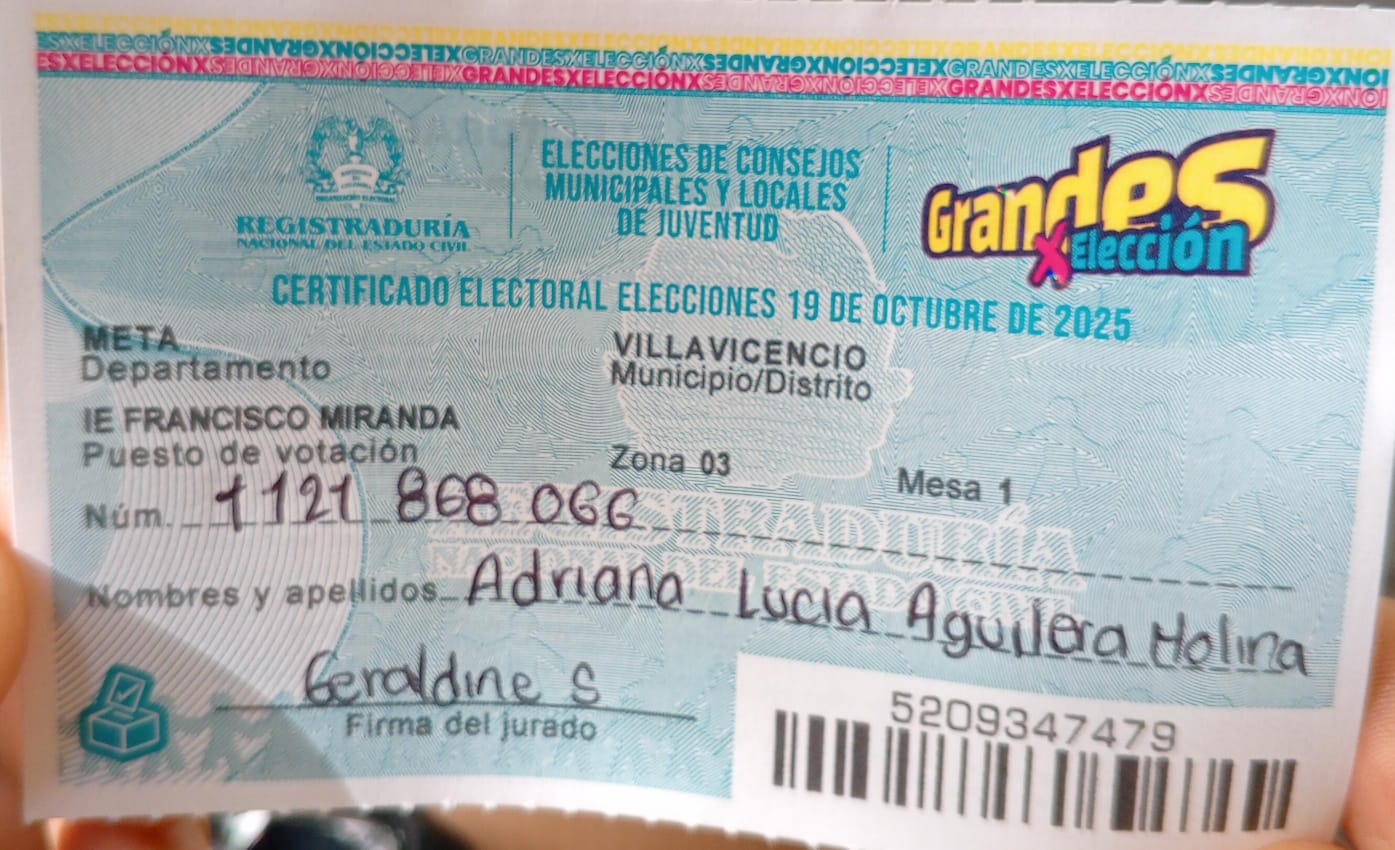 GRANDESXELECCIÓNXGRANDESXELECCIÓNXGRANDESXELECCIÓNX
ESXELECCIÓNXGRANDESXELECCIÓNXGRANDESXELECCIÓNXGRANDESXELECCIÓNXGRANDESXELECCIÓNX
ESXELECCIÓNXGRANDESXELECCIÓNXGRANDESXELECCIÓNXGRANDESXELECCIÓNXGRANDESXELECCIÓNX
REGISTRADURÍA
NACIONAL DEL ESTADO CIVIL
ELECCIONES DE CONSEJOS
MUNICIPALES Y LOCALES
DE JUVENTUD
Grandes
x Elección
CERTIFICADO ELECTORAL ELECCIONES 19 DE OCTUBRE DE 2025
META
Departamento
VILLAVICENCIO
Municipio/Distrito
IE FRANCISCO MIRANDA
Puesto de votación
Zona 03
Mesa 1
Núm. 1 121 868 066
REGISTRADURÍA
NACIONAL DEL ESTADO CIVIL
Nombres y apellidos Adriana Lucia Aguilera Molina
Geraldine S
Firma del jurado
5209347479